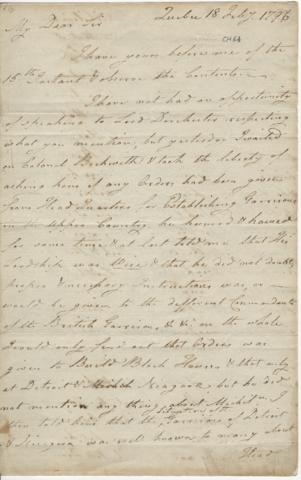 Quebec 18 Feby 1796
CH64
My Dear Sir
I have yours before me of the
15th Instant & observe the Contents —
I have not had an opportunity
of speaking to Lord Dorchester respecting
what you mention, but yesterday I waited
on Colonel Beckwith & took the liberty of
asking him if any Orders had been given
from Head Quarters for Establishing Garrisons
in the Upper Country he hemmed & hawed
for some time & at last told me that His
Lordship was & that he did not doubt,
proper & necessary Instructions was, or
would be given to the different Commandants
of the British Garrisons, & on the whole
I could only find out that Orders was
given to Build Block Houses & that only
at Detroit & Niagara, but he did
not mention any thing about Mackn. I
then told him that the situation of the Garrisons of Detroit
& Niagara was well known to many about
Head